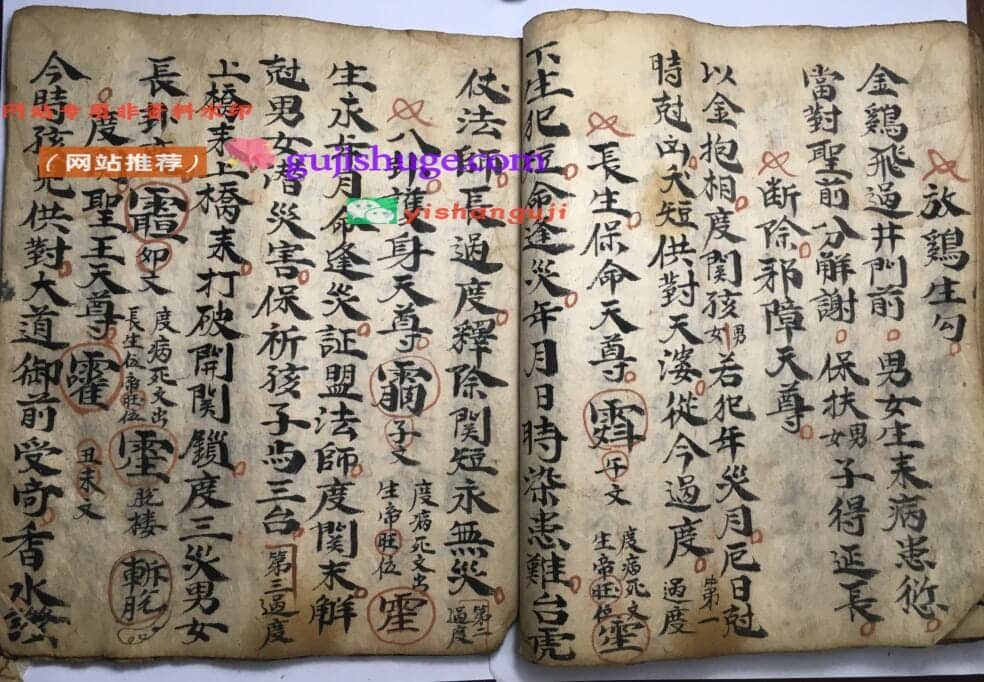 放鷄生勾
金鷄飛過井門前 男女生来病患愆
當對聖前分解謝 保扶男女子得延長
断除邪障天尊
以金抱相度関孩男女若犯年災月厄日尅
時尅凶夭短供對天漨從今過度 第一過度
長生保命天尊 午文 度病死文 生帝旺位
下生犯短命逢災年月日時染患難台虎
仗法師長過度釋除関短永無災 第二過度
八卦護身天尊 子文 度病死文出 生帝旺位
生来年月命逢災証盟法師度関来解
尅男女偆災害保祈孩子与三台 第三過度
上橋来上橋来打破開関鎖度三災男女
長 卯文 度病死文出 長生位帝旺位 脱樓
度 聖王天尊 丑未文
今時孩児供對大道御前受 香水
网站专用非资料水印
（网站推荐）
gujishuge.com
yishanguji